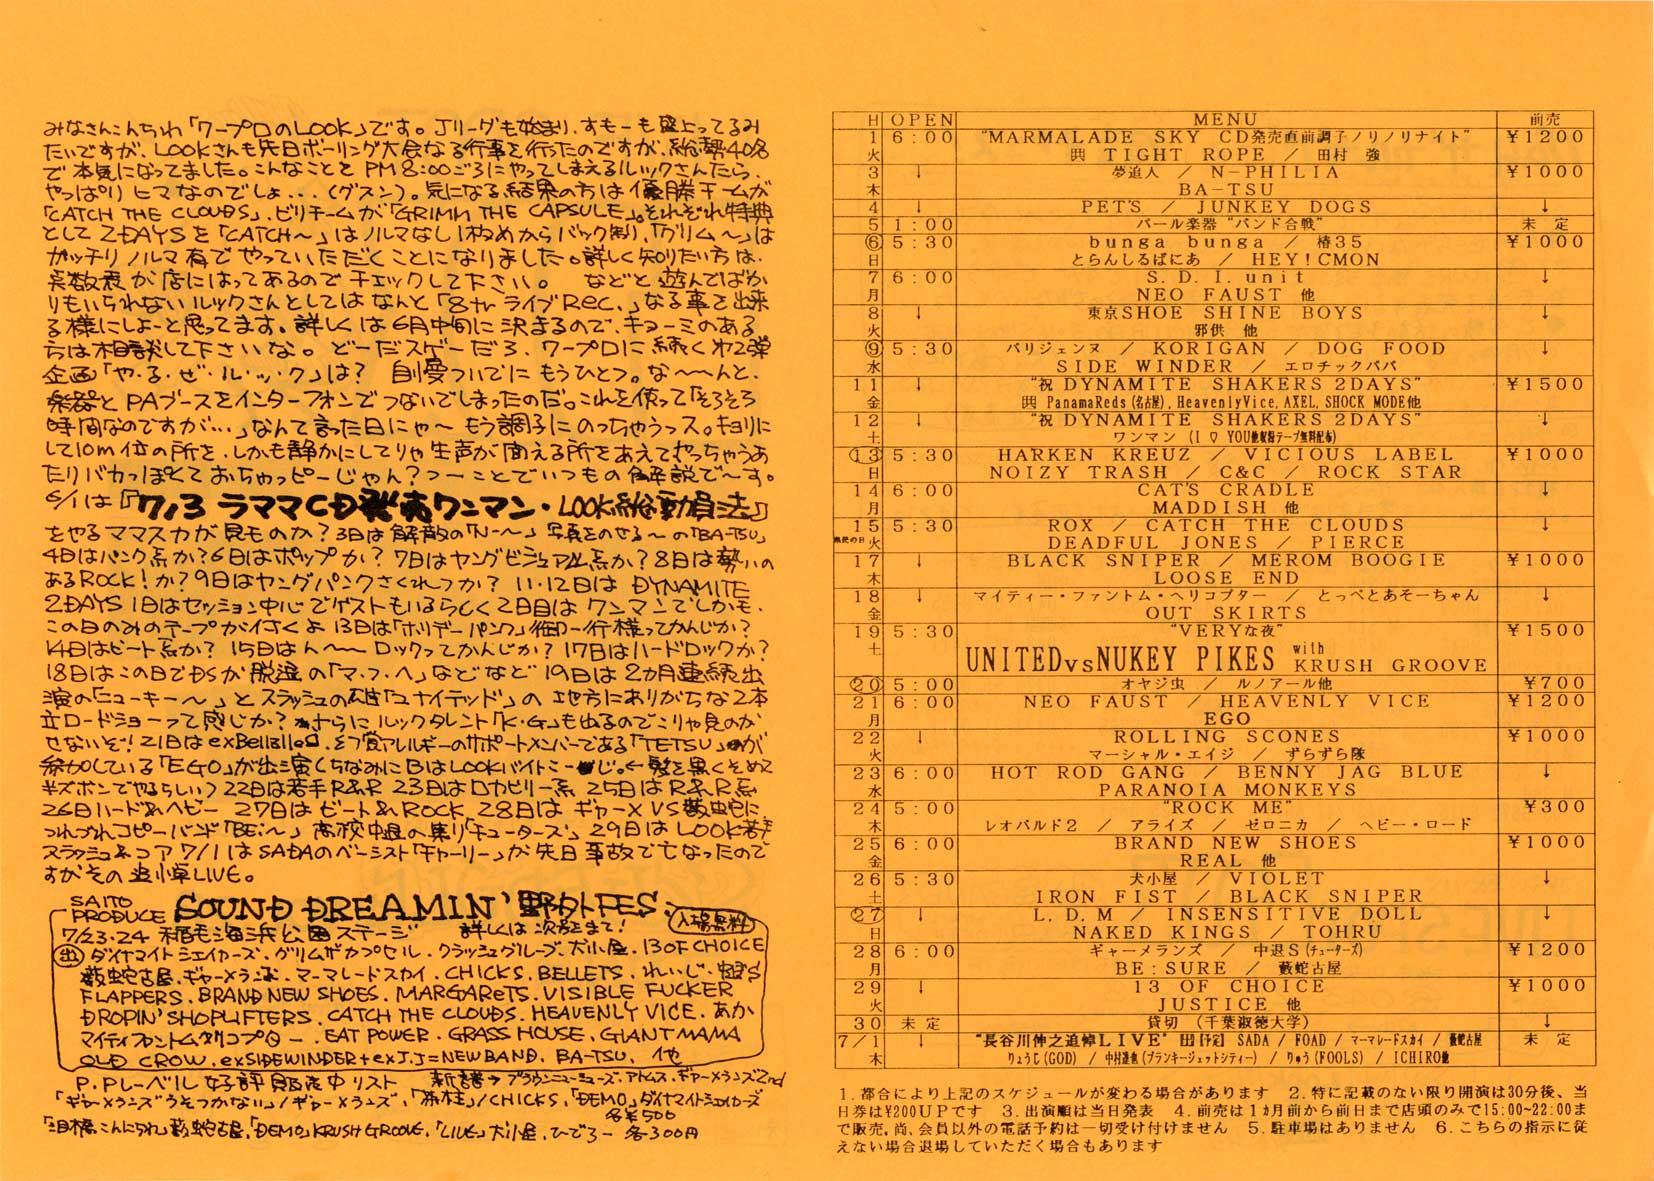 みなさんこんちわ「ワープロのLOOK」です。Jリーグも始まり、すもーも盛上ってるみ
たいですが、LOOKさんも先日ボーリング大会なる行事を行ったのですが、総勢40名
で本気になってました。こんなことを PM8:00ごろにやってしまえるルックさんたら、
やっぱり ヒマなのでしょ...(グスン)。気になる結果の方は 優勝チームが
「CATCH THE CLOUDS」、ビリチームが「GRIMM THE CAPSULE」。それぞれ特典
として 2DAYSを「CATCH〜」はノルマなし 1枚めからバック有り、「グリム〜」は
ガッチリ ノルマ有で やっていただくことになりました。詳しく知りたい方は、
点数表が店にはってあるので チェックして下さい。 などと遊んでばか
りもいられない ルックさんとしては なんと「8tr ライブRec.」なる事を出来
る様にしよーと思ってます。詳しくは6月中旬に決まるので、キョーミのある
方は相談して下さいな。どーだスゲーだろ、ワープロに続く第2弾
企画「や・る・ぜ・ル・ッ・ク」は? 自慢ついでに もうひとつ。な〜〜んと、
楽器とPAブースをインターフォンで つないでしまったのだ。これを使って「そろそろ
時間なのですが…」なんて言った日にゃ〜 もう調子に のっちゃうっス。キョリに
して10m位の所を、しかも静かにしてりゃ生声が聞える所をあえてやっちゃうあ
たりバカっぽくて おちゃっピーじゃん? つーことでいつもの解説で〜す。
6/1は『7/3 ラママCD発売ワンマン・LOOK総動員法』
をやる ママスカが見ものか? 3日は解散の「N-〜」写真をのせる〜の「BA-TSU」
4日はパンク系か? 6日はポップか? 7日はヤングビジュアル系か? 8日は勢いの
あるROCK!か? 9日はヤングパンクさくれつか? 11・12日は DYNAMITE
2DAYS 1日はセッション中心でゲストもいるらしく 2日目は ワンマンでしかも、
この日のみのテープが付くよ 13日は「ホリデーパンク」御一行様ってかんじか?
14日はビート系か? 15日はん〜〜 ロックってかんじか? 17日はハードロックか?
18日はこの日でDSが脱退の「マ・フ・ヘ」などなど 19日は 2カ月連続出
演の「ニューキー〜」とスラッシュの雄「ユナイテッド」の 地方にありがちな2本
立ロードショーって感じか? さらに ルックタレント「K・G」も出るのでこりゃ見のが
せないぞ! 21日はexBellzlleb、ミゾ賞アレルギーのサポートメンバーである「TETSU」が
参加している「EGO」が出演 ちなみに BはLOOKバイトこーじ。←髪を黒くそめて
半ズボンでやるらしい> 22日は若手R&R 23日はロカビリー系 25日はR&R系
26日ハード&ヘビー 27日は ビート&ROCK 28日は ギャーメ VS 藪蛇に
つれづれコピーバンド「BE:〜」 高校中退の集り「チューターズ」 29日は LOOK若手
スラッシュ&コア 7/1はSADAのベーシスト「チャーリー」が先日 事故で亡なったので
すがその追悼LIVE。
SAITO PRODUCE SOUND DREAMIN' 野外FES. 入場無料
7/23・24 稲毛海浜公園ステージ 詳しくは次号まて!
出 ダイナマイトシェイカーズ・グリムザカプセル・クラッシュグルーブ・犬小屋・13 OF CHOICE
藪蛇古屋・ギャーメランズ・マーマレードスカイ・CHICKS・BELLETS・れいじ
FLAPPERS・BRAND NEW SHOES・MARGAReTS・VISIBLE FUCKER
DROPIN' SHOPLIFTERS・CATCH THE CLOUDS・HEAVENLY VICE・あか
マイティファントムヘリコプター・EAT POWER・GRASS HOUSE・GIANT MAMA
OLD CROW・exSIDEWINDER+exJ.J=NEW BAND・BA-TSU、他
P.Pレーベル好評販売中リスト 新譜→ブラウンニューシューズ・アトムス・ギャーメランズ2nd
「ギャーメランズうそつかない」/ギャーメランズ、「茶柱」/CHICKS、「DEMO」ダイナマイトシェイカーズ
各¥500
「目標こんにちわ」藪蛇古屋、「DEMO」KRUSH GROOVE、「LIVE」犬小屋、ひでろー 各300円
日 OPEN MENU 前売
1 6:00 “MARMALADE SKY CD発売直前調子ノリノリナイト” ¥1200
火 共 TIGHT ROPE / 田村 強
3 ↓ 夢追人 / N-PHILIA ¥1000
木 BA-TSU
4 ↓ PET'S / JUNKEY DOGS ↓
5 1:00 パール楽器“バンド合戦” 未定
⑥ 5:30 bunga bunga / 椿35 ¥1000
日 とらんしるばにあ / HEY!CMON
7 6:00 S.D.I.unit ↓
月 NEO FAUST 他
8 ↓ 東京SHOE SHINE BOYS ↓
火 邪供 他
⑨ 5:30 パリジェンヌ / KORIGAN / DOG FOOD ↓
水 SIDE WINDER / エロチックパパ
11 ↓ “祝 DYNAMITE SHAKERS 2DAYS” ¥1500
金 共 PanamaReds(名古屋),HeavenlyVice,AXEL,SHOCK MODE他
12 ↓ “祝 DYNAMITE SHAKERS 2DAYS” ↓
土 ワンマン (I ♡ YOU他収録テープ無料配布)
⑬ 5:30 HARKEN KREUZ / VICIOUS LABEL ¥1000
日 NOIZY TRASH / C&C / ROCK STAR
14 6:00 CAT'S CRADLE ↓
月 MADDISH 他
15 5:30 ROX / CATCH THE CLOUDS ↓
県民の日 火 DEADFUL JONES / PIERCE
17 ↓ BLACK SNIPER / MEROM BOOGIE ¥1000
木 LOOSE END
18 ↓ マイティー・ファントム・ヘリコプター / とっぺとあそーちゃん ↓
金 OUT SKIRTS
19 5:30 “VERYな夜” ¥1500
土 UNITED vs NUKEY PIKES with KRUSH GROOVE
⑳ 5:00 オヤジ虫 / ルノアール他 ¥700
21 6:00 NEO FAUST / HEAVENLY VICE ¥1200
月 EGO
22 ↓ ROLLING SCONES ¥1000
火 マーシャル・エイジ / ずらずら隊
23 6:00 HOT ROD GANG / BENNY JAG BLUE ↓
水 PARANOIA MONKEYS
24 5:00 “ROCK ME” ¥300
木 レオパルド2 / アライズ / ゼロニカ / ヘビー・ロード
25 6:00 BRAND NEW SHOES ¥1000
金 REAL 他
26 5:30 犬小屋 / VIOLET ↓
土 IRON FIST / BLACK SNIPER
㉗ ↓ L.D.M / INSENSITIVE DOLL ↓
日 NAKED KINGS / TOHRU
28 6:00 ギャーメランズ / 中退S(チューターズ) ¥1200
月 BE:SURE / 藪蛇古屋
29 ↓ 13 OF CHOICE ¥1000
火 JUSTICE 他
30 未定 貸切 (千葉淑徳大学) ↓
7/1 ↓ “長谷川伸之追悼LIVE” 出[予定] SADA / FOAD / マーマレードスカイ / 藪蛇古屋 未定
木 りょうじ(GOD) / 中村達也(ブランキージェットシティー) / りゅう(FOOLS) / ICHIRO他
1.都合により上記のスケジュールが変わる場合があります 2.特に記載のない限り開演は30分後、当
日券は¥200UPです 3.出演順は当日発表 4.前売は1ヵ月前から前日まで店頭のみで15:00~22:00ま
で販売,尚、会員以外の電話予約は一切受け付けません 5.駐車場はありません 6.こちらの指示に従
えない場合退場していただく場合もあります